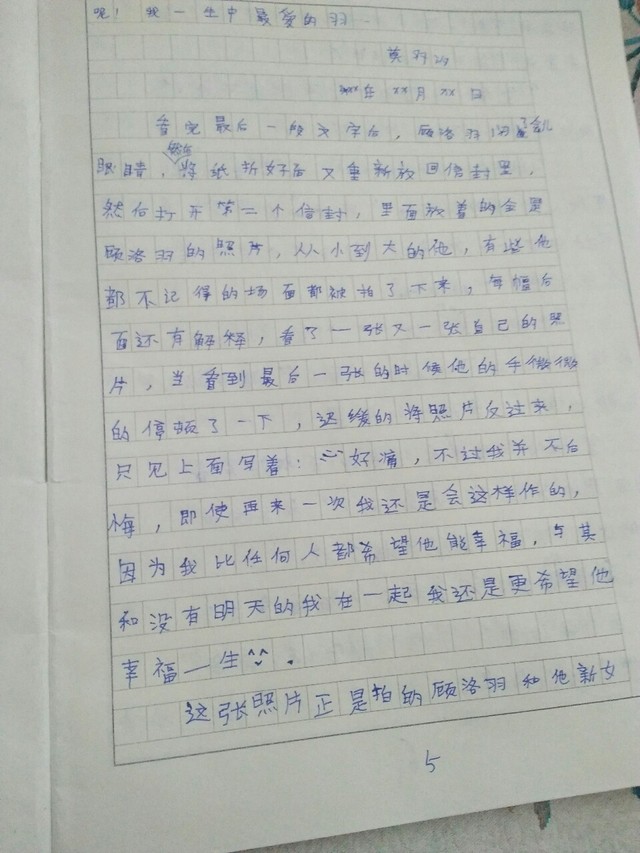 呢！我一生中最爱的羽.
莫羽汐
xxx年xx月xx日
看完最后一段文字后，顾洛羽闭了
眼睛，然后将纸折好后又重新放回信封里，
然后打开第二个信封，里面放着的全是
顾洛羽的照片，从小到大的他，有些他
都不记得的场面都被拍了下来，每幅后
面还有解释，看了一张又一张自己的照
片，当看到最后一张的时候他的手微微
的停顿了一下，迟缓的将照片反过来，
只见上面写着：好满，不过我并不后
悔，即使再来一次我还是会这样作的，
因为我比任何人都希望他能幸福，与其
和没有明天的我在一起我还是更希望他
幸福一生^^.
这张照片正是拍的顾洛羽和他新女
5